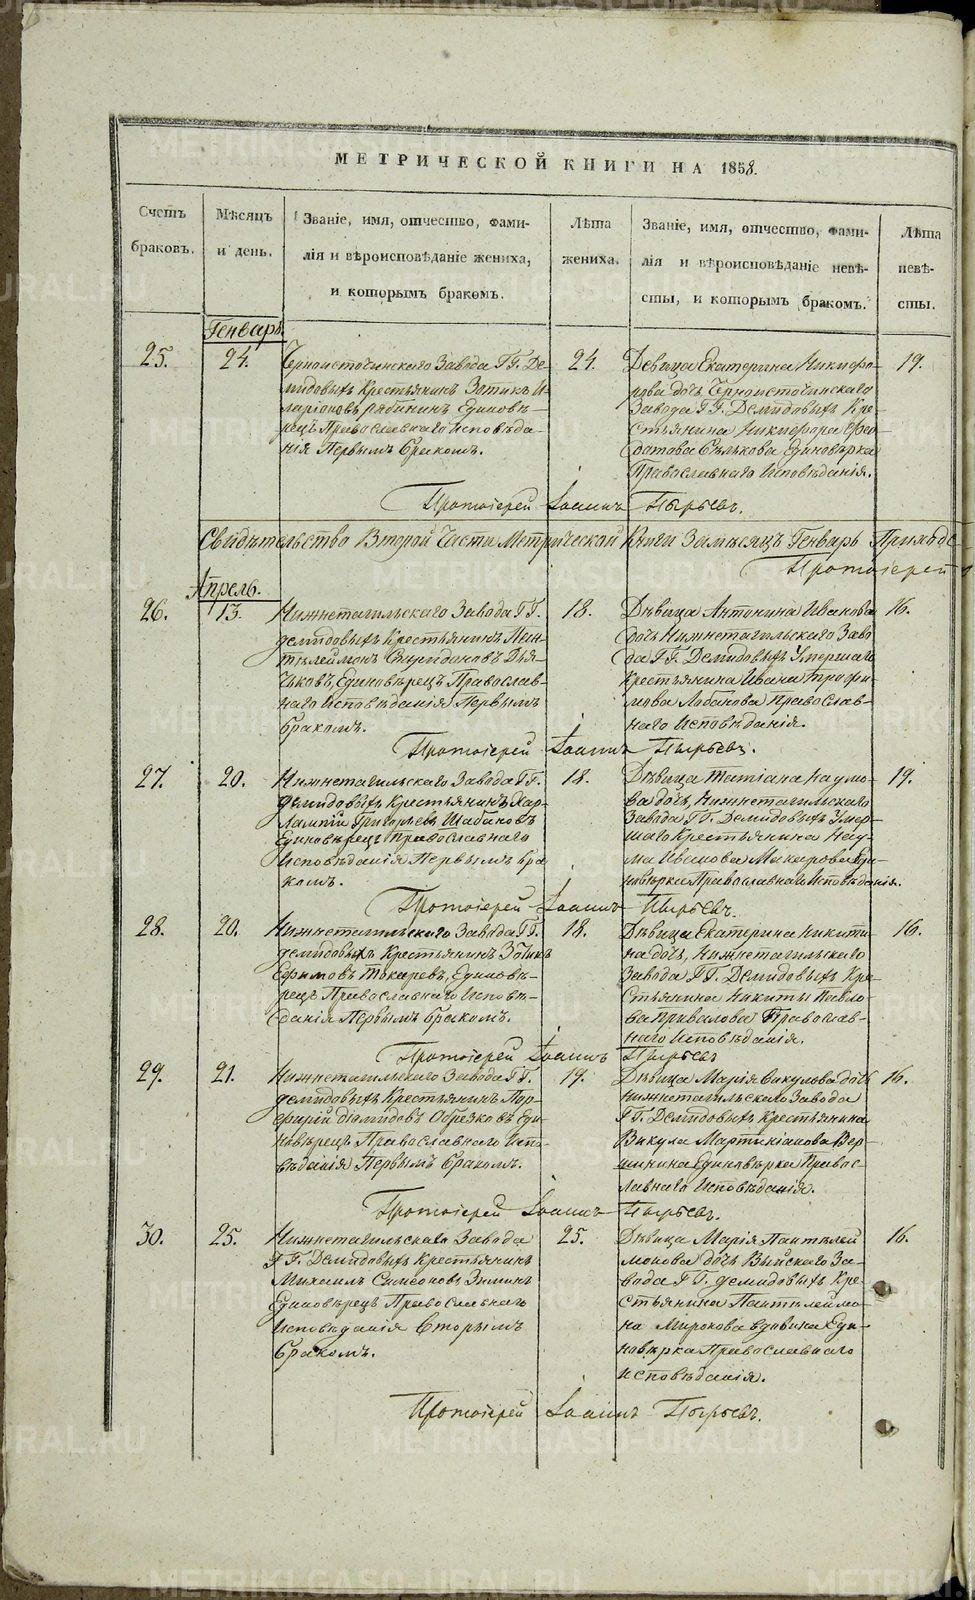 МЕТРИЧЕСКОЙ КНИГИ НА 1858.
Счетъ
браковъ.
Мѣсяцъ
и день.
Званіе, имя, отчество, фами-
лія и вѣроисповѣданіе жениха,
и которымъ бракомъ.
Лѣта
жениха.
Званіе, имя, отчество, фами-
лія и вѣроисповѣданіе невѣ-
сты, и которымъ бракомъ.
Лѣта
невѣ-
сты.
Генварь
25.
24.
Черноисточинскаго Завода ГГ. Де-
мидовыхъ Крестьянинъ Зотикъ И-
ларіоновъ Рябининъ Единовѣ-
рецъ Православнаго исповѣда-
нія Первымъ бракомъ.
24.
Девица Екатерина Никифо-
рова дочь Черноисточинскаго
Завода ГГ. Демидовыхъ Кре-
стьянина Никифора Фео-
дотова Единовѣрка
Православнаго Исповѣданія.
19.
Протоіерей Іоаннъ Пырьевъ.
Свидѣтельство Второй Части Метрической Книги За мѣсяцъ Генварь
Протоіерей
Апрель.
26.
13.
Нижнетагильскаго Завода ГГ.
Демидовыхъ Крестьянинъ Пан-
телеймонъ Спиридоновъ Дья-
чковъ, Единовѣрецъ Православ-
наго Исповѣданія Первымъ
бракомъ.
18.
Дѣвица Антонина Иванова
дочь Нижнетагильскаго Заво
да ГГ. Демидовыхъ Умершаго
Крестьянина Ивана Трофи-
мова Лобанова Православ-
наго Исповѣданія.
16.
Протоіерей Іоаннъ Пырьевъ.
27.
20.
Нижнетагильскаго Завода ГГ.
Демидовыхъ Крестьянинъ Хар-
лампій Григорьевъ Шабановъ
Единовѣрецъ Православнаго
Исповѣданія Первымъ бра
комъ.
18.
Дѣвица Татіана Наумо-
ва дочь, Нижнетагильскаго
Завода ГГ. Демидовыхъ Умер-
шаго Крестьянина Нау-
ма Иванова Макарова Еди-
новѣрка Православнаго Исповѣданія.
19.
Протоіерей Іоаннъ Пырьевъ.
28.
20.
Нижнетагильскаго Завода ГГ.
Демидовыхъ Крестьянинъ Зотикъ
Ефимовъ Токаревъ, Единовѣ-
рецъ Православнаго Исповѣ-
данія Первымъ бракомъ.
18.
Дѣвица Екатерина Никити
на дочь, Нижнетагильскаго
Завода ГГ. Демидовыхъ Кре-
стьянина Никиты Павло-
ва Привалова Православ-
наго Исповѣданія.
16.
Протоіерей Іоаннъ Пырьевъ
29.
21.
Нижнетагильскаго Завода ГГ.
Демидовыхъ Крестьянинъ Пор-
фирій Діомидовъ Обрезковъ Еди-
новѣрецъ Православнаго Испо-
вѣданія Первымъ бракомъ.
19.
Дѣвица Марія Викулова дочь
Нижнетагильскаго Завода
ГГ. Демидовыхъ Крестьянина
Викула Мартиніанова Вер-
шинина Единовѣрка Правос-
лавнаго Исповѣданія.
16.
Протоіерей Іоаннъ Пырьевъ.
30.
25.
Нижнетагильскаго Завода
ГГ. Демидовыхъ Крестьянинъ
Михаилъ Симеоновъ Зиминъ
Единовѣрецъ Православнаго
Исповѣданія Вторымъ
бракомъ.
25.
Дѣвица Марія Пантелей
монова дочь Выйскаго За-
вода ГГ. Демидовыхъ Кре-
стьянина Пантелеймо-
на Миронова Еди-
новѣрка Православнаго
Исповѣданія.
16.
Протоіерей Іоаннъ Пырьевъ.
METRIKI.GASO-URAL.RU